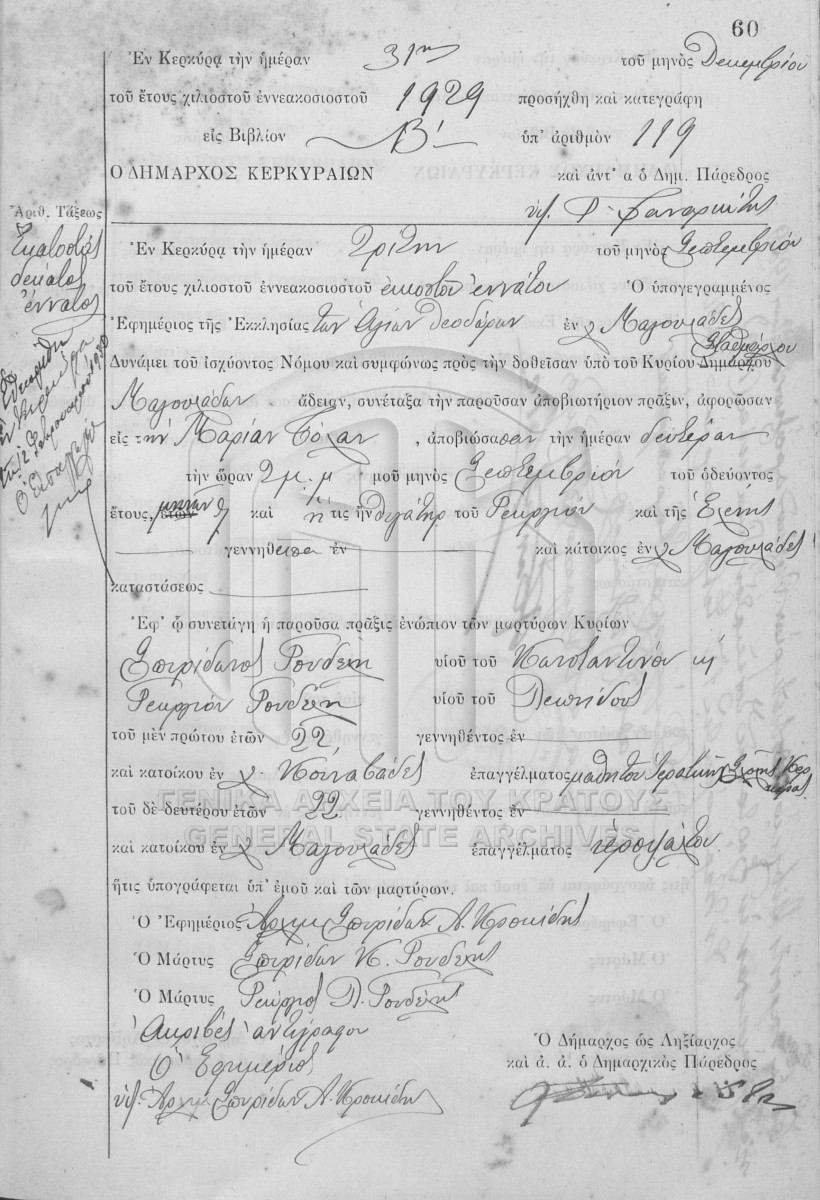 60
Ἐν Κερκύρᾳ τὴν ἡμέραν 31ην τοῦ μηνὸς Δεκεμβρίου
τοῦ ἔτους χιλιοστοῦ ἐννεακοσιοστοῦ 1929 προσήχθη καὶ κατεγράφη
εἰς Βιβλίον Β' ὑπ' ἀριθμὸν 119
Ο ΔΗΜΑΡΧΟΣ ΚΕΡΚΥΡΑΙΩΝ καὶ ἀντ' α ὁ Δημ. Πάρεδρος
Ἀριθ. Τάξεως
Ἑκατοστός
δέκατος
ἔννατος
Ἐν Κερκύρᾳ τὴν ἡμέραν Τρίτην τοῦ μηνὸς Σεπτεμβρίου
τοῦ ἔτους χιλιοστοῦ ἐννεακοσιοστοῦ εἰκοστοῦ ἐννάτου Ὁ ὑπογεγραμμένος
Ἐφημέριος τῆς Ἐκκλησίας τῶν Ἁγίων Θεοδώρων ἐν χ Μαγουλάδες
Δυνάμει τοῦ ἰσχύοντος Νόμου καὶ συμφώνως πρὸς τὴν δοθεῖσαν ὑπὸ τοῦ Κυρίου Δημάρχου
Μαγουλάδων ἄδειαν, συνέταξα τὴν παροῦσαν ἀποβιωτήριον πρᾶξιν, ἀφορῶσαν
εἰς την Μαρίαν , ἀποβιώσασαν τὴν ἡμέραν δευτέραν
τὴν ὥραν 2 μ. μ μοῦ μηνὸς Σεπτεμβρίου τοῦ ὁδεύοντος
ἔτους, ἐτῶν μηνῶν καὶ ἥ τις ἦν θυγάτηρ τοῦ Γεωργίου καὶ τῆς Ἑλένης
γεννηθεῖσα ἐν καὶ κάτοικος ἐν χ Μαγουλάδες
καταστάσεως
Ἐφ' ᾧ συνετάγη ἡ παροῦσα πρᾶξις ἐνώπιον τῶν μαρτύρων Κυρίων
Σπυρίδωνος Ρουδέλη υἱοῦ τοῦ Κωνσταντίνου
Γεωργίου Ρουδέλη υἱοῦ τοῦ
τοῦ μὲν πρώτου ἐτῶν 22 γεννηθέντος ἐν
καὶ κατοίκου ἐν χ. ἐπαγγέλματος μαθητοῦ Ἱερατικῆς Σχολῆς Κερκύρας
τοῦ δὲ δευτέρου ἐτῶν 22 γεννηθέντος ἐν
καὶ κατοίκου ἐν χ Μαγουλάδες ἐπαγγέλματος ἱεροψάλτου
ἥτις ὑπογράφεται ὑπ' ἐμοῦ καὶ τῶν μαρτύρων.
Ὁ Ἐφημέριος Ἀρχιμ Σπυρίδων Α. Κροκίδης
Ὁ Μάρτυς Σπυρίδων Κ. Ρουδέλης
Ὁ Μάρτυς Γεώργιος Λ. Ρουδέλης
Ἀκριβές ἀντίγραφον
Ὁ Ἐφημέριος
υπ. Ἀρχιμ Σπυρίδων Α. Κροκίδης
Ὁ Δήμαρχος ὡς Ληξίαρχος
καὶ ἀ. ἀ. ὁ Δημαρχικὸς Πάρεδρος
ΓΕΝΙΚΑ ΑΡΧΕΙΑ ΤΟΥ ΚΡΑΤΟΥΣ
GENERAL STATE ARCHIVES